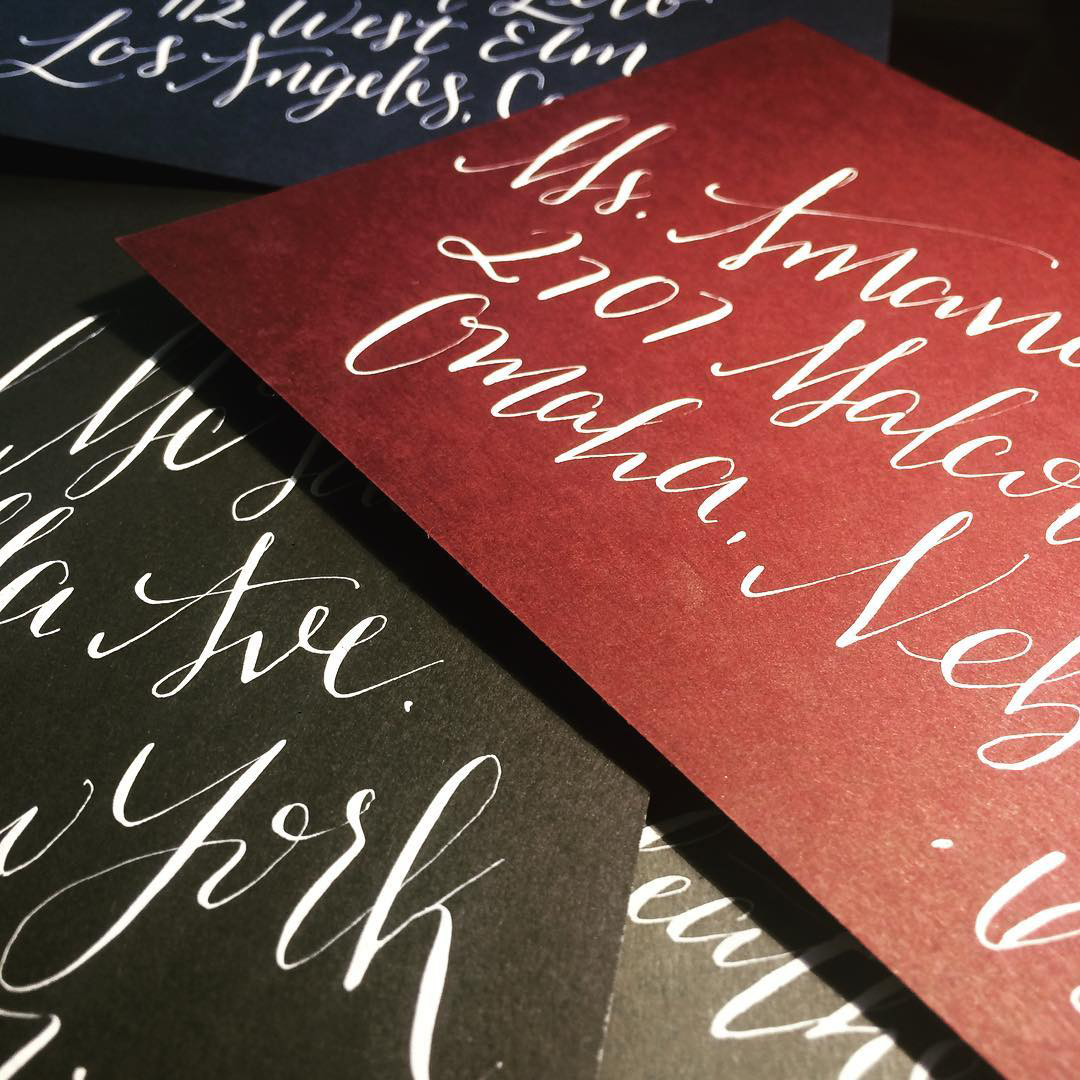 112 West Elm
Los Angeles, C
Ms. Aman
2707 Malco
Omaha, Neb
6
Mc
lla Ave.
w York